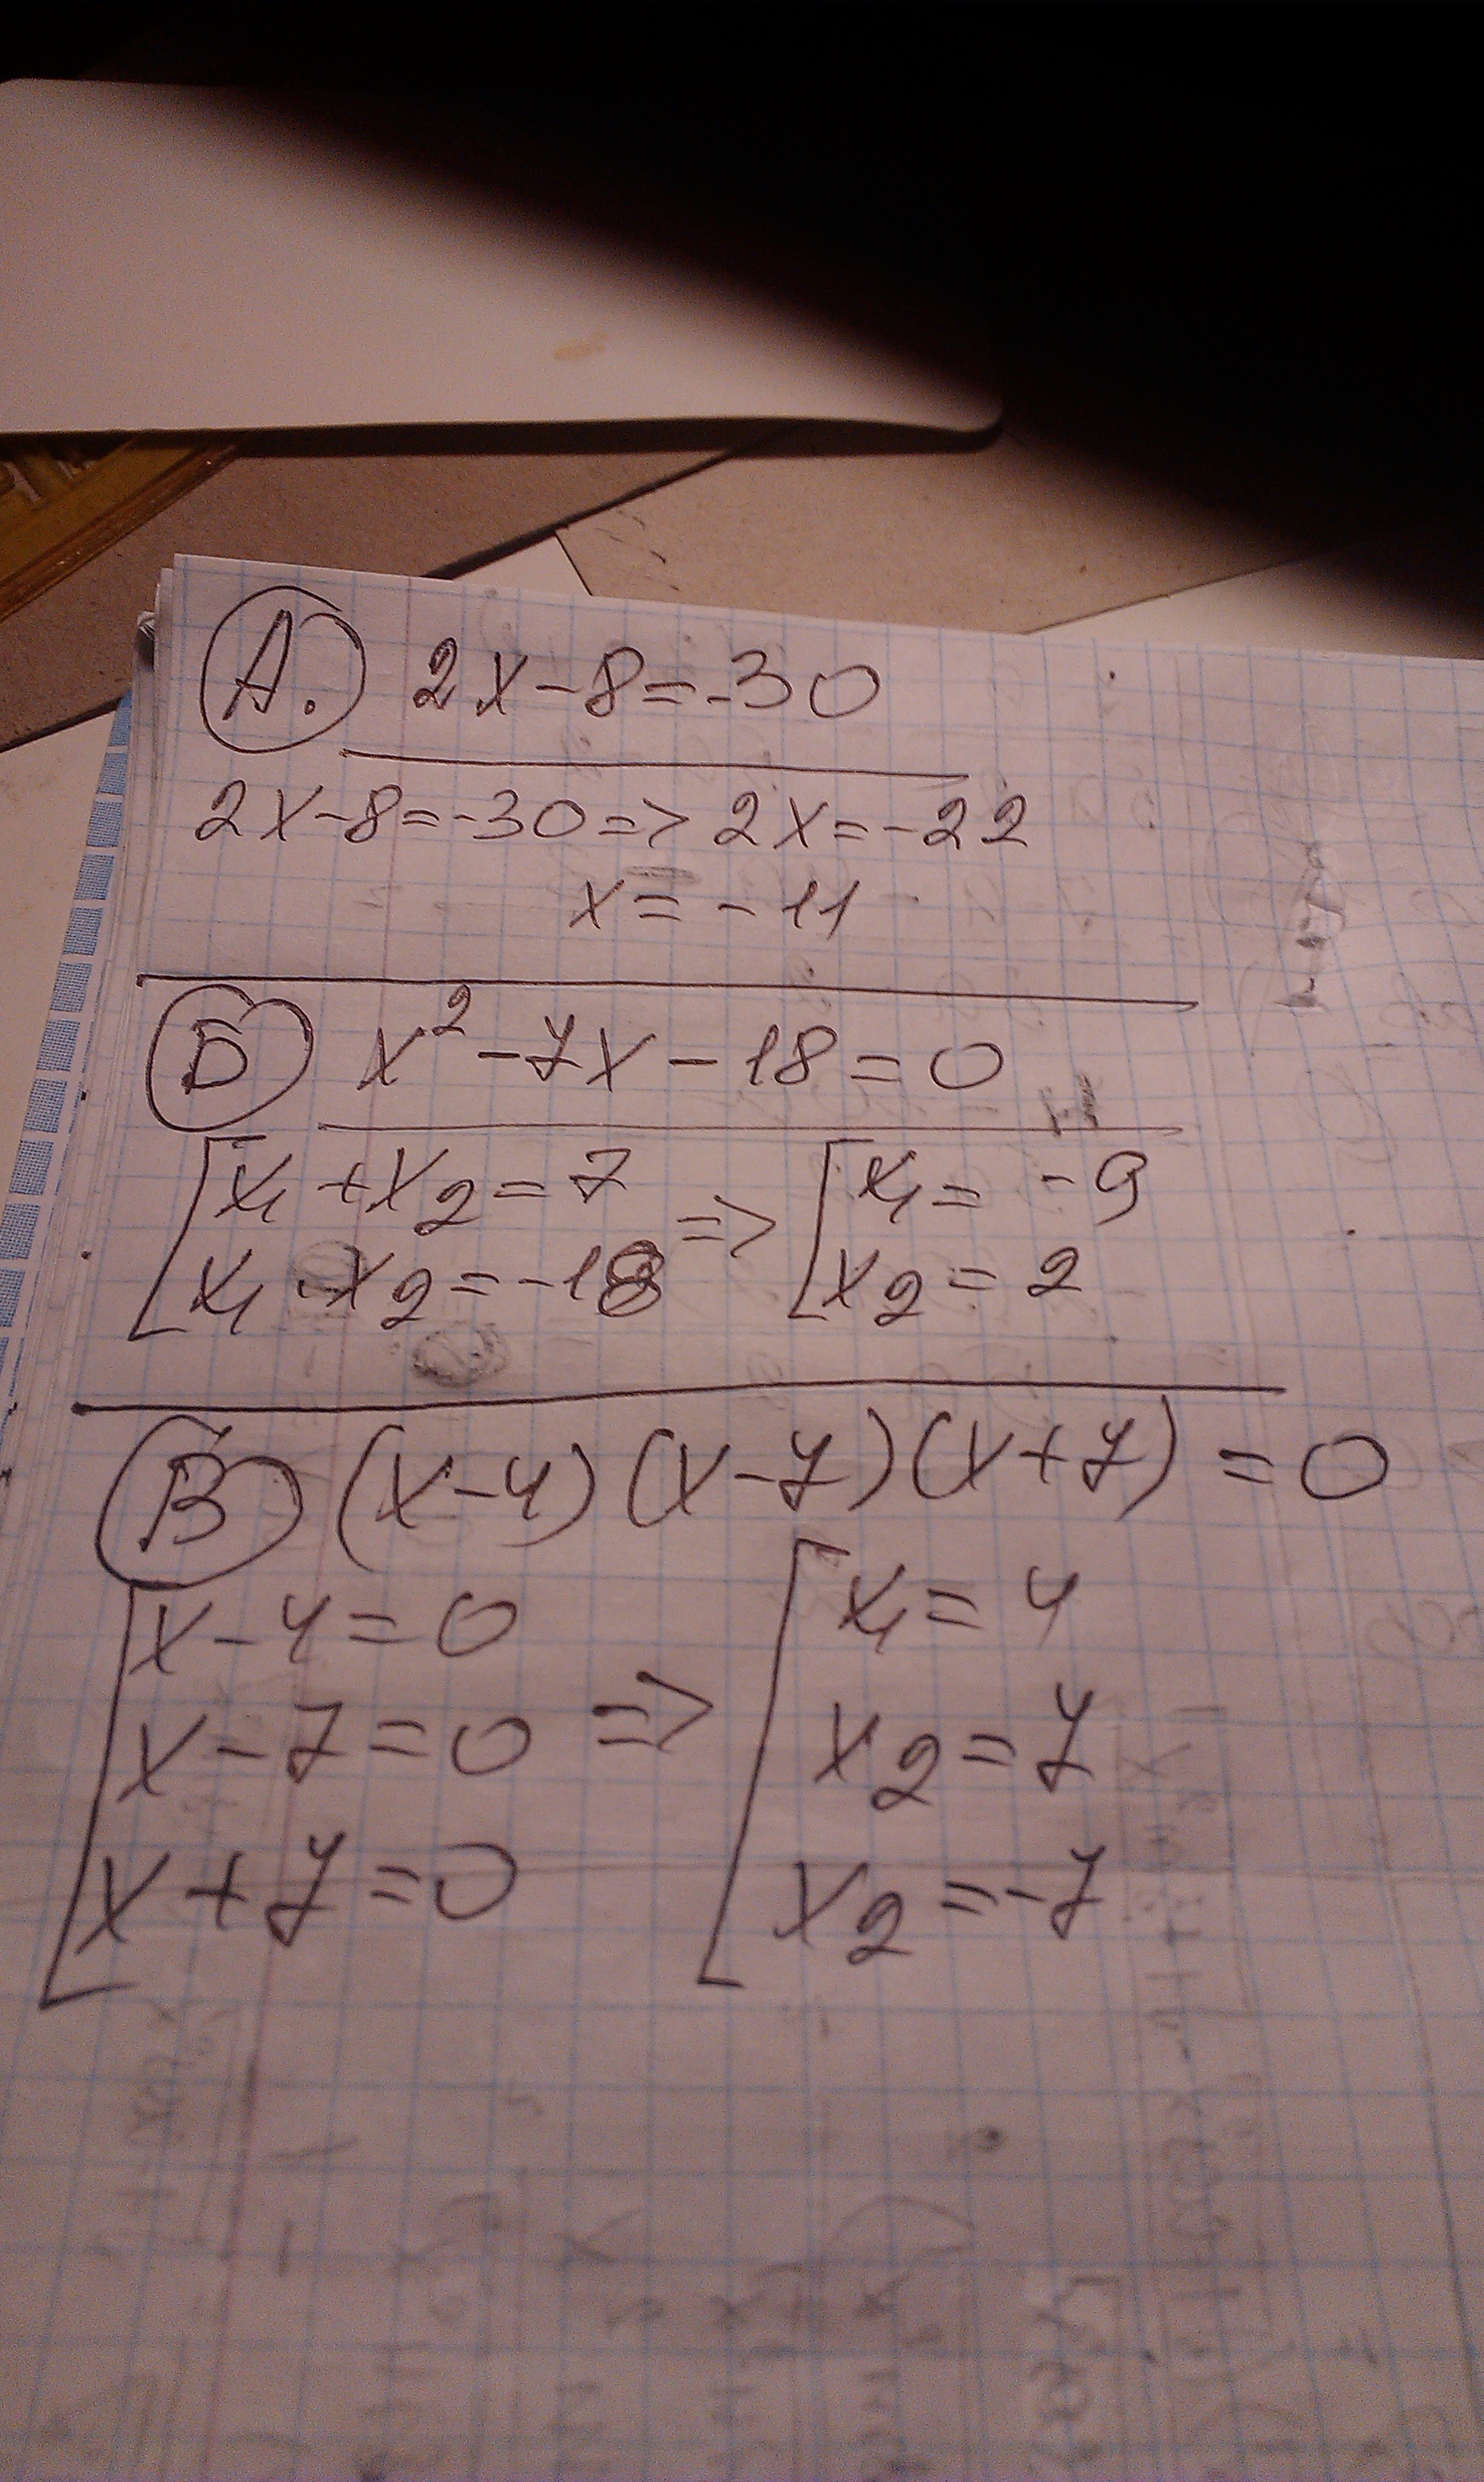 А. 2x-8=-30
2x-8=-30=>2x=-22
x=-11
Б x²-7x-18=0
[x₁+x₂=7 => [x₁=-9
[x₁·x₂=-18 [x₂=2
В (x-4)(x-7)(x+7)=0
[x-4=0 [x₁=4
[x-7=0 => [x₂=7
[x+7=0 [x₂=-7